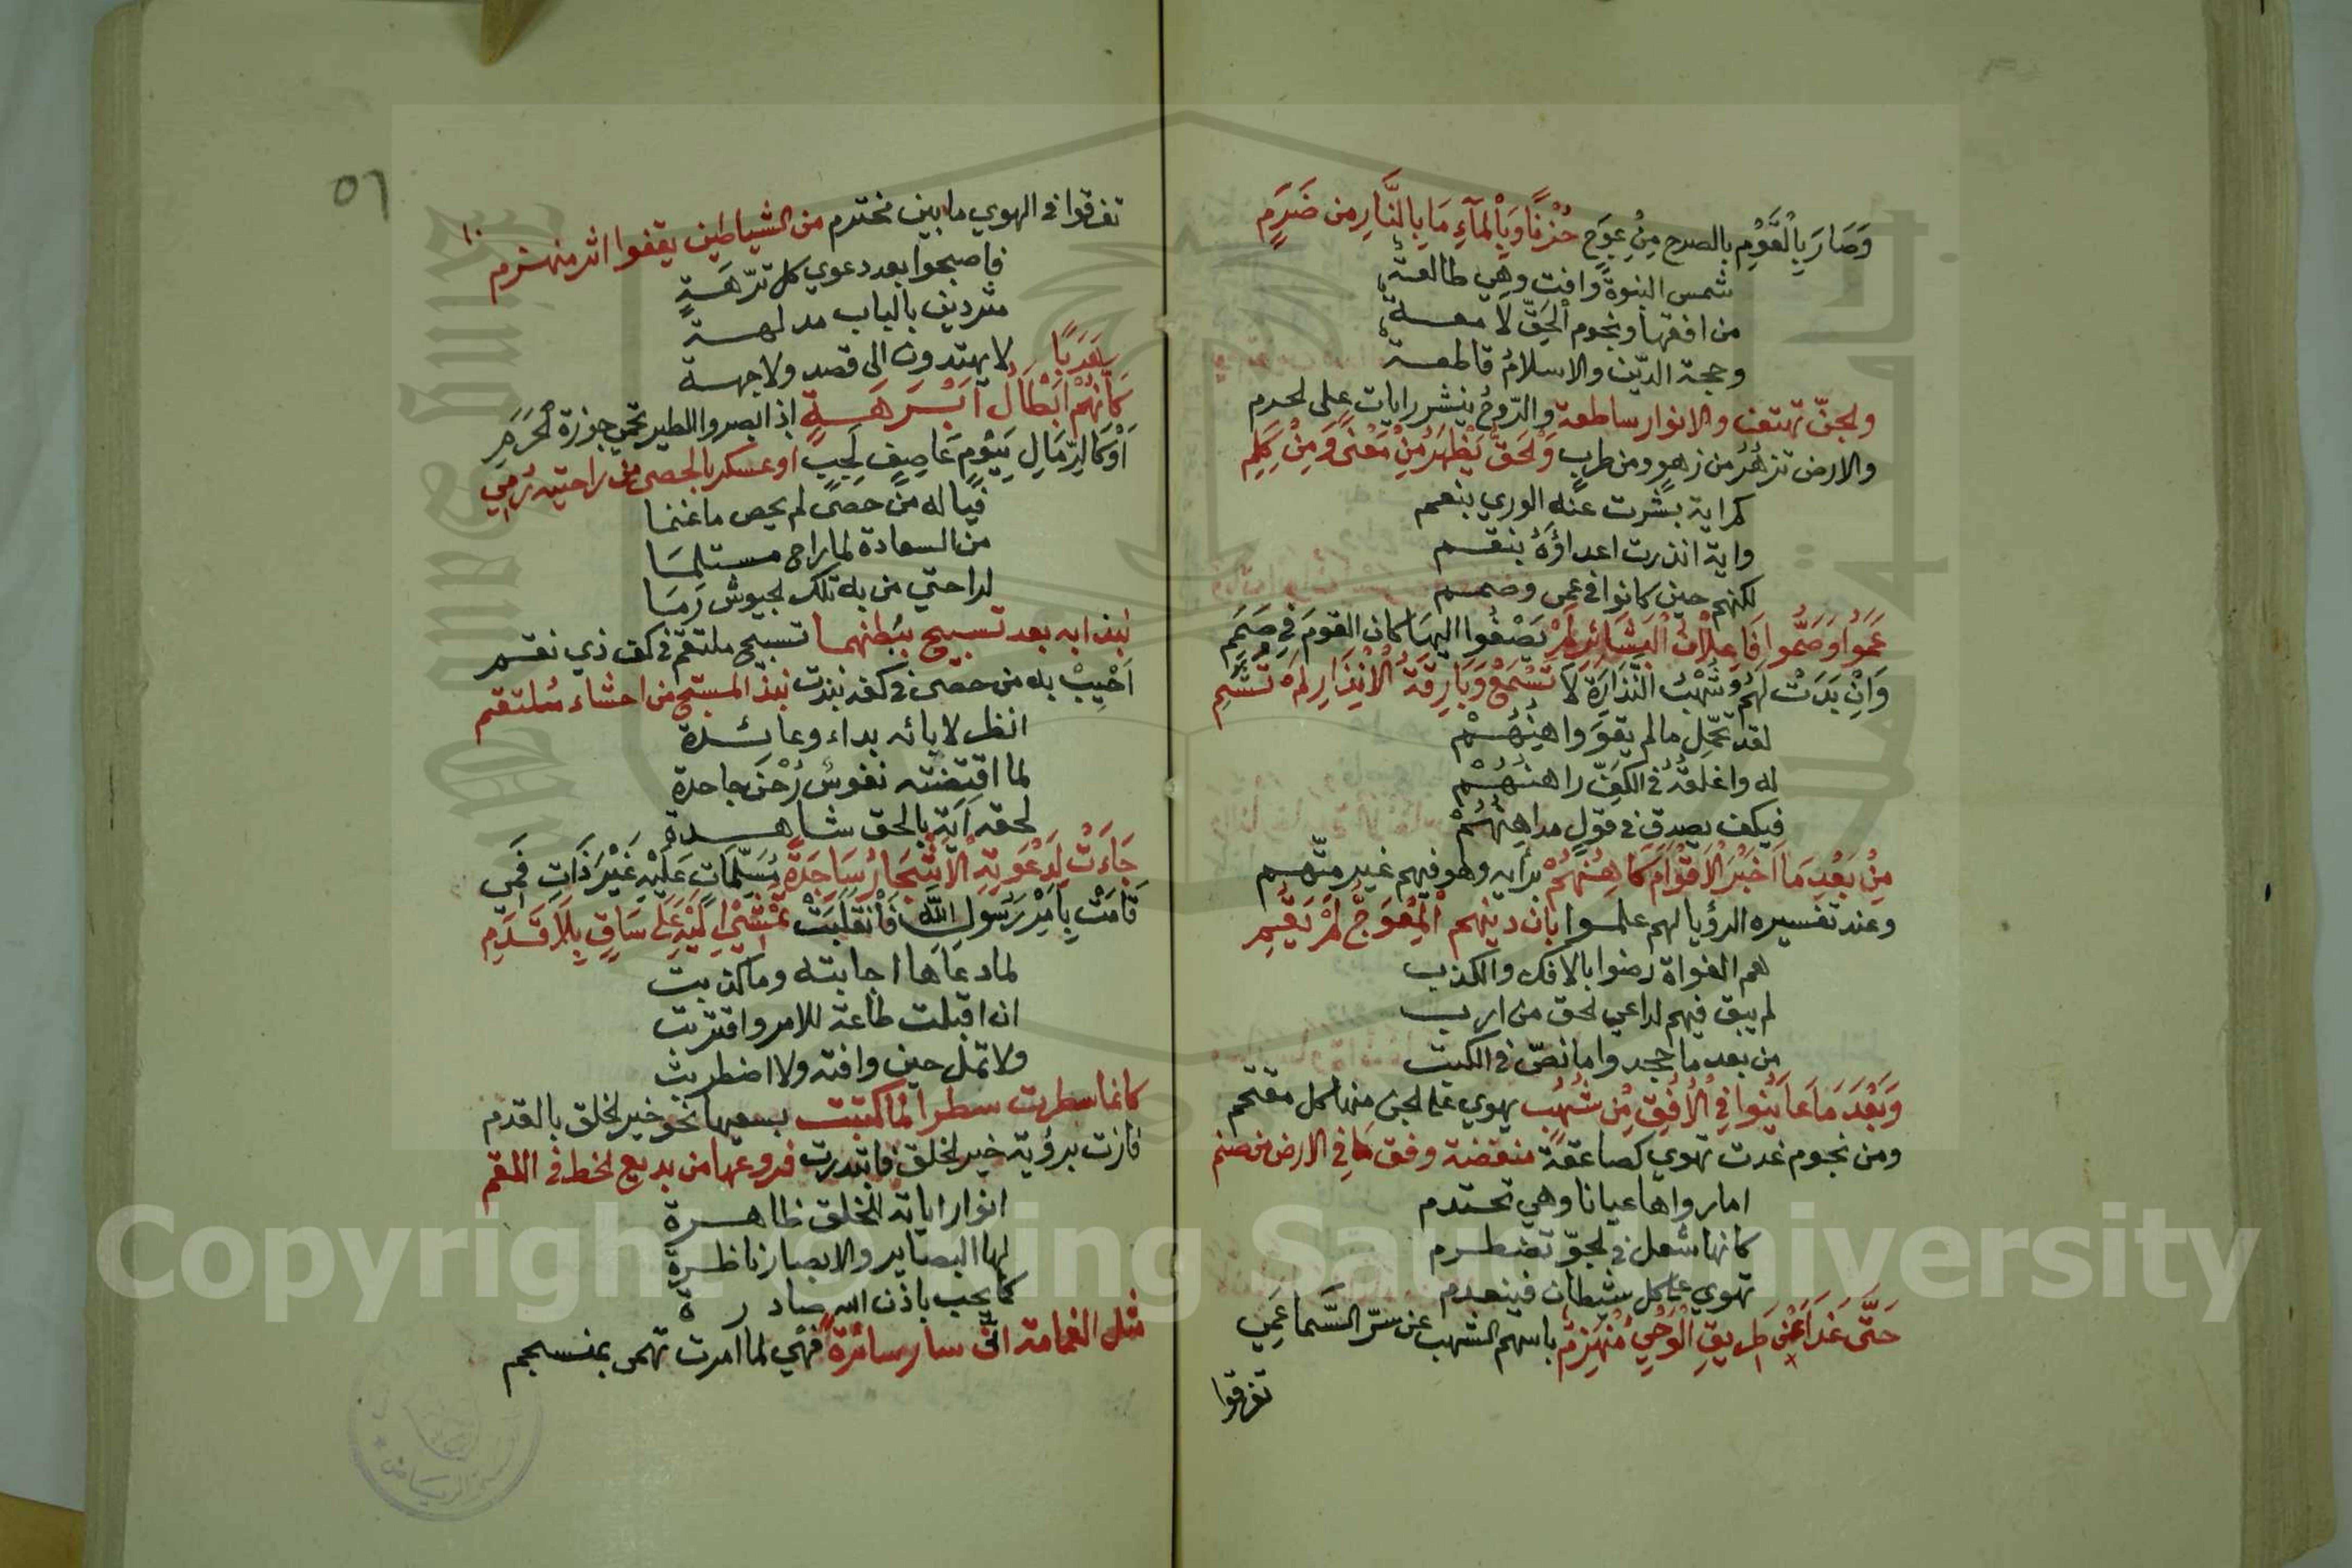 وَصَارَ بِالْقَوْمِ بالصرح مِنْ عِوَجٍ حُزْنًا وَبِالْمَآءِ مَا بِالنَّارِ مِن ضَرَمِ
شمس النبوة وافت وهي طالعة
من افقها ونجوم الحَقّ لامعة
وحجة الدّين والاسلامُ قاطعة
والجنّ تهتف والانوار ساطعة والرّوحُ ينشر رايات على الحرم
والارض تزهُرُ من زهوٍ ومن طربٍ وَالْحَقُّ يَظْهَرُ مِنْ مَعْنًى وَمِنْ كَلِمِ
كم راية بشرت عنه الوري بنعم
واية انذرت اعداؤهُ بنقم
لكنهم حين كانوا في عمى وصمم
عَمُوا وَصَمُّوا فَاِعْلَانُ الْبَشَائِرِ لَمْ يَصْغُوا اليها كان القومَ في صَمَمِ
وَاِنْ بَدَتْ لَهُمُ شُهْبُ النَّذَارَةِ لَا تُسْمَعْ وَبَارِقَةُ الْاِنْذَارِ لَمْ تُشَمِ
لقد تحمّل ما لم يقوَ واهِنُهُمْ
له واغلقهُ في الكفّ راهنُهُمْ
فكيف يصدق في قولٍ مداهِنُهُمْ
مِنْ بَعْدِ مَا اَخْبَرَ الْاَقْوَامَ كَاهِنُهُمْ برايه وهو فيهم غير متّهم
وعند تفسيره الرؤيا لهم علموا بان دينهم الْمُعْوَجَّ لَمْ يَقُمِ
هم الغواة رضوا بالافك والكذب
لم يبق فيهم لداعي الحق من ارب
من بعد ما جحدوا ما نصّ في الكتب
وَبَعْدَ مَا عَايَنُوا فِي الْاُفُقِ مِن شُهُبٍ يهوي على الجن منها كل مقتحم
ومن نجوم غدت تهوي كصاعقة منقضة وفق مَا في الارض من صنم
اما رواها عيانا وهي تحتدم
كانها شعل في الجوّ تضطرم
تهوي على كل شيطان فينهدم
حَتَّى غَدَا عَنْ طَرِيقِ الْوَحْيِ مُنْهَزِمٌ باسهم الشهب عن سرّ السَّما عَمِي
تفرقوا
٥٦
تفرقوا في الهوي ما بين مخترم من الشياطين يقفوا اثر منهزم
فاصبحوا بعد دعوي كل ترّهةٍ
مترديف بالباب مدلهة
لا يهتدون الى قصد ولا جهة
كَاَنَّهُمْ هَرَبًا اَبْطَالُ اَبْرَهَةٍ اذ ابصروا الطير تحمي جوزة الحَرَمِ
اَوْ كَالرِّمَالِ بِيَوْمٍ عَاصِفٍ لَجِبٍ او عسكر بالحصى من راحتيه رُمِي
فيا له من حصًى لم يحص ما غنما
من السعادة لما راح مستلمَا
لراحتي من به تلك الجيوش رمَا
نبذا به بعد تسبيح ببطنهما تسبيح ملتقم في كف ذي نقم
اَحْبِبْ به من حصى في كفه نبذت نبذَ المسبّح من احشاء مُلتقم
انظر لاياته بداء وعائدة
لما اقتضته نفوسُ رُحْنَ جاحدة
لحقه اَيَة بالحق شاهدة
جَاءَتْ لِدَعْوَتِهِ الْاَشْجَارُ سَاجِدَةً مُسَلِّمَاتٍ عَلَيْهِ غَيْرَ ذَاتِ فَمِي
قَامَتْ بِاَمْرِ رَسُولِ اللّٰهِ فَانْقَلَبَتْ تَمْشِي اِلَيْهِ عَلَى سَاقٍ بِلَا قَدَمِ
لما دعاها اجابته وما كذبت
ان اقبلت طاعة للامر واقتربت
ولا تمل حين وافته ولا اضطربت
كانما سطرت سطرا لما كتبت بسعيها نحو خير الخلق بالقدم
فازت برؤية خير الخلق فابتدرت فروعها من بديع الخط في اللقم
انوار اياته للخلق ظاهرة
لها البصاير والابصار ناظرة
كما يحب باذن الله صادرة
مثل الغمامة انّى سار سائرة فهي لما امرت تهمى بمنسجم
Copyright © King Saud University